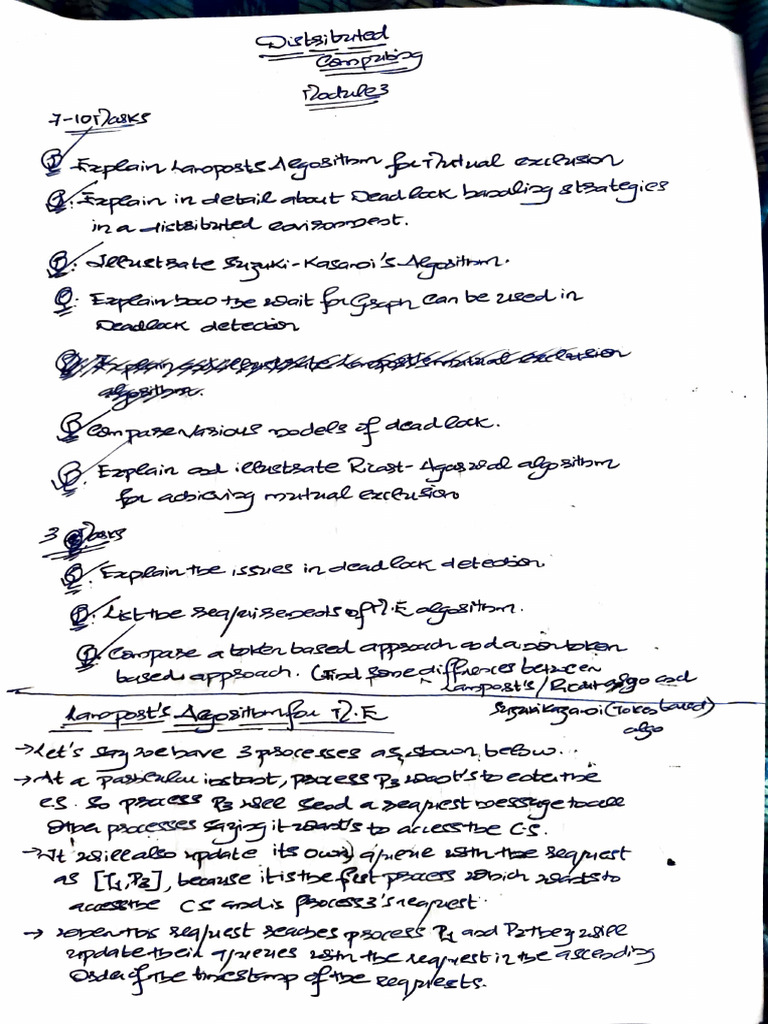 Distributed
Computing
Module3
7-10 Marks
Q Explain Lamposts Algorithm for Mutual exclusion
Q. Explain in detail about Deadlock handling strategies
in a distributed environment.
Q. Illustrate Suzuki-Kasami's Algorithm.
Q. Explain how the wait for Graph can be used in
Deadlock detection
algorithm.
Q Compare various models of deadlock.
Q. Explain and illustrate Ricart-Agarwal algorithm
for achieving mutual exclusion
3 Marks
Q. Explain the issues in deadlock detection.
Q. List the requirements of M.E algorithm.
Q. Compare a token based approach and a non token
based approach. (Find some differences between
Lampost's/Ricart algo and
Suzuki Kazami (Token based)
algo
Lampost's Algorithm for M.E
→ Let's say we have 3 processes as shown below..
→ At a particular instant, process P3 want's to enter the
CS. So process P3 will send a request message to all
Other processes saying it wants to access the C.S.
→ It will also update its own queue with the request
as [T1,P3], because it is the first process which wants to
access the CS and is Process3's request.
→ when this request reaches process P1 and P2 they will
update their queries with the request in the ascending
Order of the timestamp of the requests.